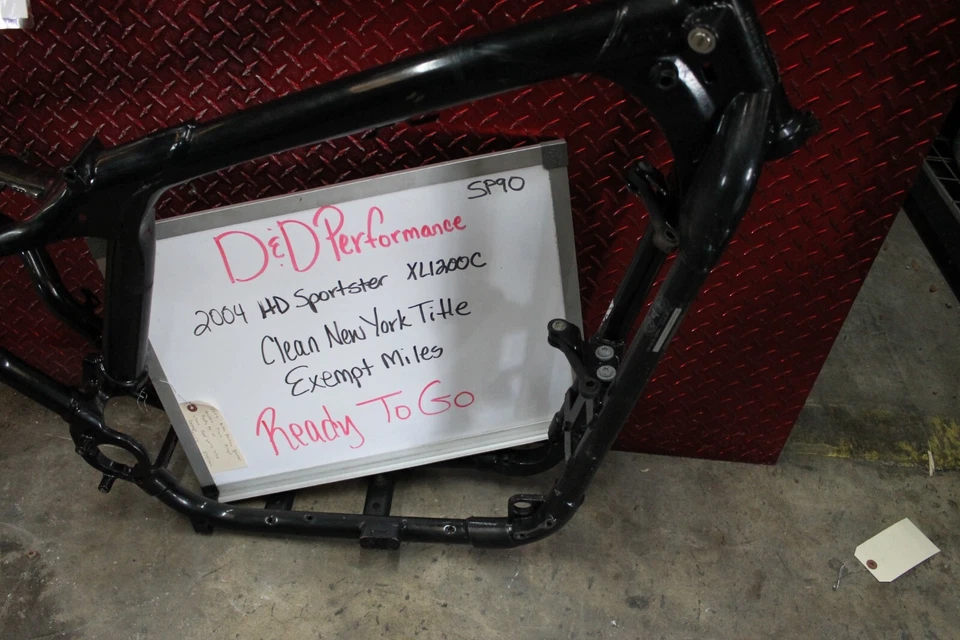 SP90
D&D Performance
2004 HD Sportster XL1200C
Clean New York Title
Exempt Miles
Ready To Go